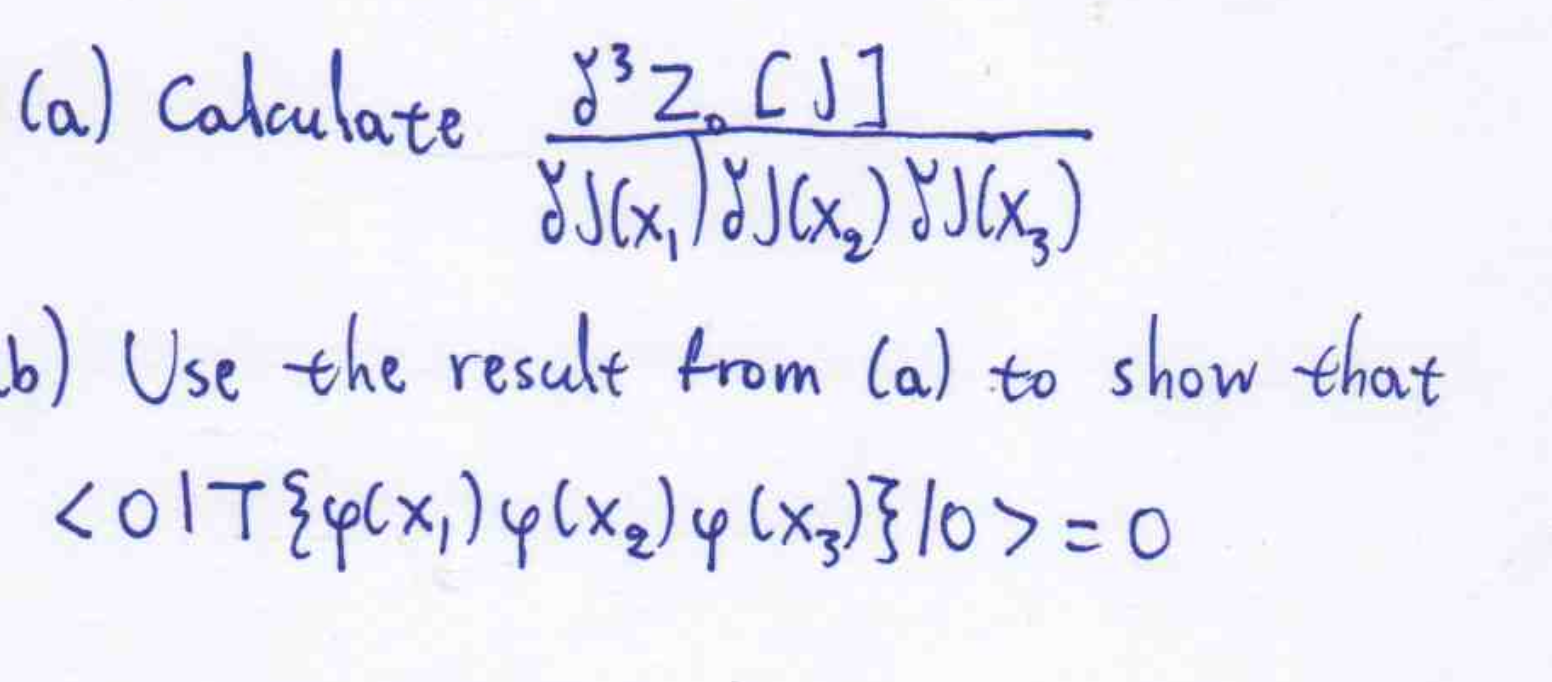 (a) Calculate δ³Z₀[J] / δJ(x₁)δJ(x₂)δJ(x₃)
b) Use the result from (a) to show that
<0|T{φ(x₁)φ(x₂)φ(x₃)}|0> = 0